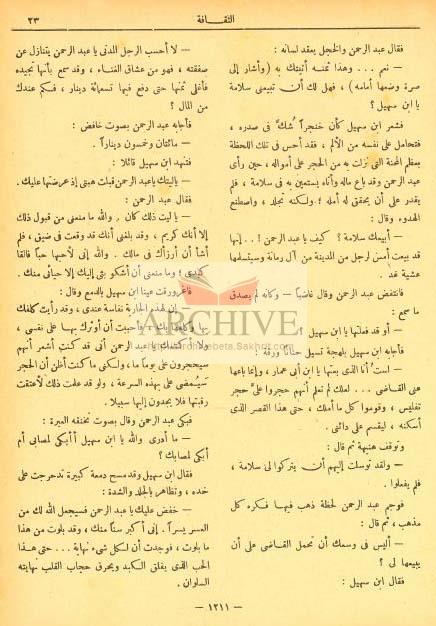 ٢٣
الثقافة
فقال عبد الرحمن والخجل يعقد لسانه :
— نعم ... وهذا ثمنه أتيتك به (وأشار إلى
صرة وضعها أمامه) ، فهل لك أن تبيعنى سلامة
يا ابن سهيل ؟
فشعر ابن سهيل كأن خنجراً شُك فى صدره ،
فتحامل على نفسه من الألم ، فقد أحس فى تلك اللحظة
بعظم المحنة التى نزلت به من الحجر على أمواله ، حين رأى
عبد الرحمن وقد باع ماله وأتاه يستعين به فى سلامة ، فلم
يقدر على أن يحقق له أمله ؛ ولكنه تجلد ، واصطنع
الهدوء وقال :
— أبيعك سلامة ؟ كيف يا عبد الرحمن ! .. إنها
قد بيعت أمس لرجل من المدينة من آل رمانة وسيتسلمها
عشية غد .
فانتفض عبد الرحمن وقال غاضباً — وكأنه لم يصدق
ما سمع :
— أو قد فعلتها يا ابن سهيل ؟
فأجابه ابن سهيل بلهجة تسيل حناناً ورقة :
— لستُ أنا الذى بعتها يا ابن أبى عمار ، وإنما باعها
عنى القاضى ... لعلك لم تعلم أنهم حجروا علىّ حجر
تفليس ، وقوموا كل ما أملك ، حتى هذا القصر الذى
أسكنه ، ليقسم على دائنى .
وتوقف هنيهة ثم قال :
— ولقد توسلت إليهم أن يتركوا لى سلامة ،
فلم يفعلوا .
فوجم عبد الرحمن لحظة ذهب فيها فكره كل
مذهب ، ثم قال :
— أليس فى وسعك أن تحمل القاضى على أن
يبيعها لى ؟
فقال ابن سهيل :
— لا أحسب الرجل المدنى يا عبد الرحمن يتنازل عن
صفقته ، فهو من عشاق الغناء ، وقد سمع بأنها تجيده
فأغلى ثمنها حتى دفع فيها تسعمائة دينار ، فكم عندك
من المال ؟
فأجابه عبد الرحمن بصوت خافض :
— مائتان وخمسون ديناراً .
فتنهد ابن سهيل قائلا :
— ياليتك يا عبد الرحمن قبلت هبتى إذ عرضتها عليك .
فقال عبد الرحمن :
— يا ليت ذلك كان . والله ما منعنى من قبول ذلك
إلا أنك كريم ، وقد بلغنى أنك قد وقعت فى ضيق ، فلم
أشأ أن أرزأك فى مالك . والله إنى لأحبها حباً فالقا
كبدى ؛ وما منعنى أن أشكو بثى إليك إلا حيائى منك .
فاغرورقت عينا ابن سهيل بالدمع وقال :
— إن لهذه الجارية نفاسة عندى ، وقد رأيت كلفك
بها وكلفها بك ، فأحببت أن أوثرك بها على نفسى ،
ولا أكتمك يا عبد الرحمن أنى قد كنت أشعر أنهم
سيحجرون علىّ يوماً ما ، ولكنى ما كنت أظن أن الحجر
سيُمضى علىّ بهذه السرعة ، ولو قد علمت ذلك لأعتقت
رقبتها فلا يجدون إليها سبيلا .
فبكى عبد الرحمن وقال بصوت تخنقه العبرة :
— ما أدرى والله يا ابن سهيل أأبكى لمصابى أم
أبكى لمصابك ؟
فقال ابن سهيل وقد مسح دمعة كبيرة تدحرجت على
خده ، وتظاهر بالجلد والشدة :
— خفض عليك يا عبد الرحمن فسيجعل الله لك من
العسر يسراً . إنى أكبر سناً منك ، وقد بلوت من هذا
ما بلوت ، فوجدت أن لكل شىء نهاية ... حتى هذا
الحب الذى يفلق الكبد ويحرق حجاب القلب نهايته
السلوان .
— ١٢١١ —
ARCHIVE